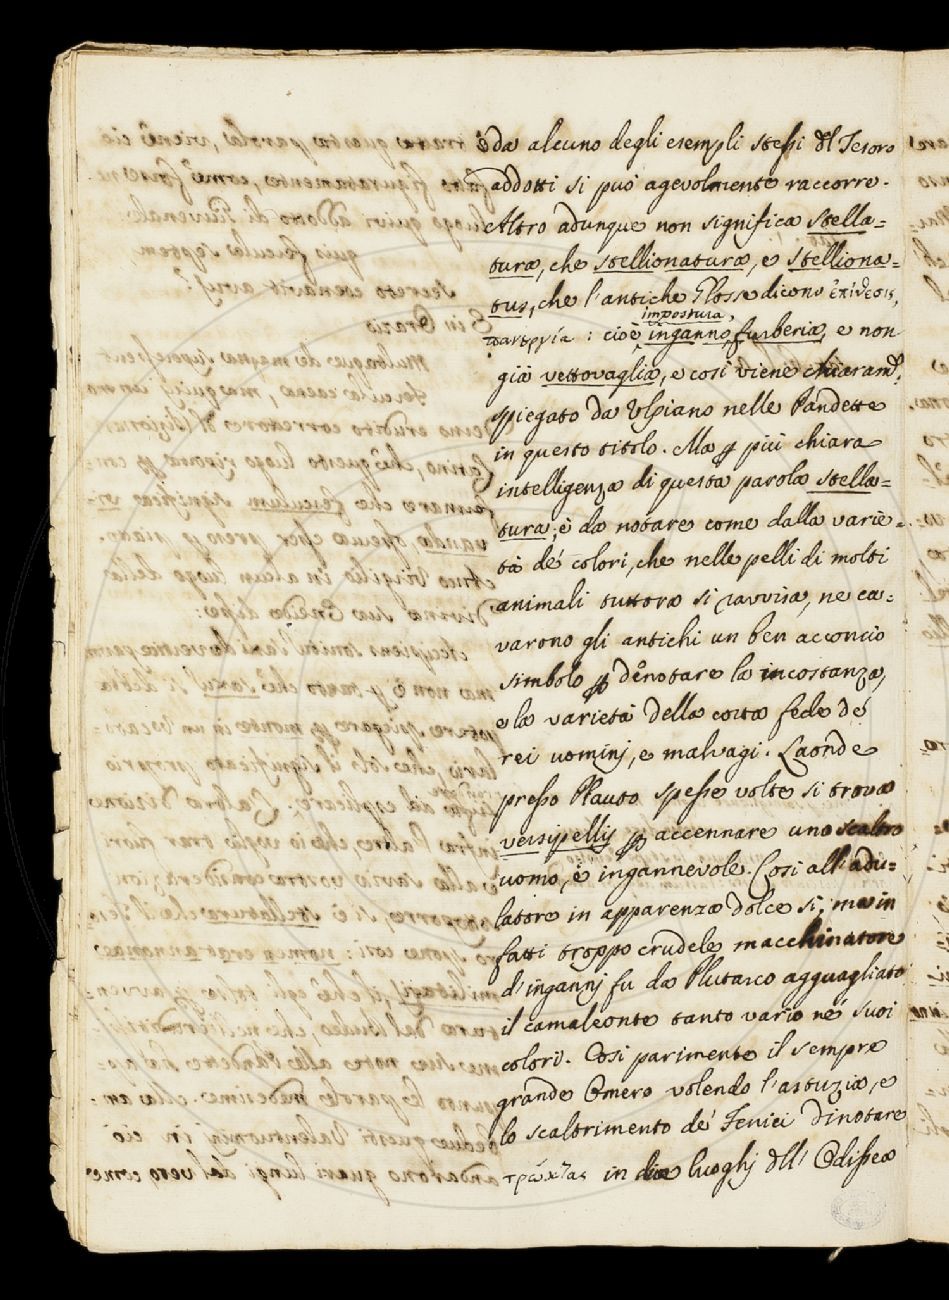 è da alcuno degli esempli stessi dl Tesoro
addotti si può agevolmente raccorre.
Altro adunque non significa stella=
tura, che stellionatura, e stelliona=
tus, che l'antiche Glosse dicono ἐπίθεσις,
πανουργία : cioè inganno, impostura, furberia, e non
già vettovaglia, e così viene chiaramte.
spiegato da Ulpiano nelle Pandette
in questo titolo. Ma p più chiara
intelligenza di questa parola stella=
tura, è da notare come dalla varie=
tà de' colori, che nelle pelli di molti
animali tuttora si ravvisa, ne ca=
varono gli antichi un ben acconcio
simbolo p denotare la incostanza,
e la varietà della corta fede de'
rei uominj, e malvagi. Laonde
presso Plauto spesse volte si trova
versipellis p accennare uno scaltro
uomo, e ingannevole. Così all' adu=
latore in apparenza dolce sì, ma in
fatti troppo crudele macchinatore
d'ingannj fu da Plutarco agguagliato
il camaleonte tanto vario ne' suoi
colori. Così parimente il sempre
grande Omero volendo l'astuzia, e
lo scaltrimento de' Fenici dinotare
τρώκτας in due luoghj dll' Odissea